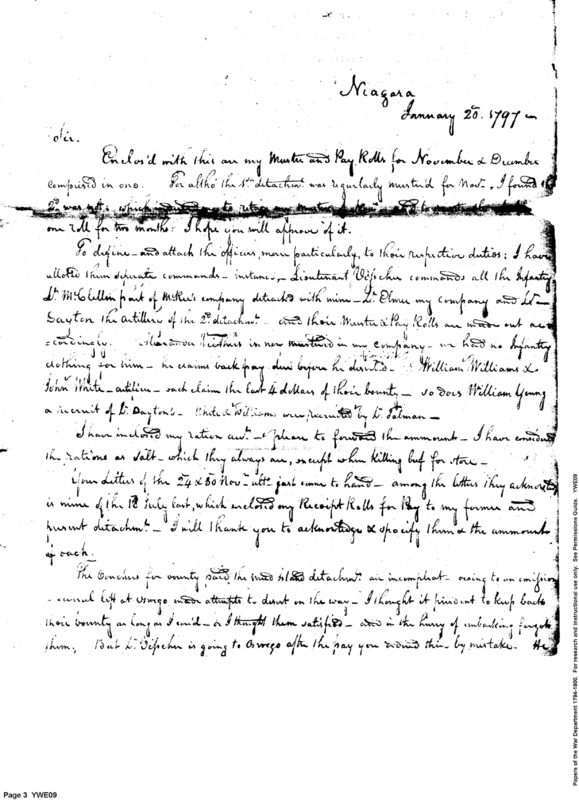 Niagara
January 20. 1797
Sir.
Enclos'd with this are my Muster and Pay Rolls for November & December
comprised in one. For altho' the 1st detachmt. was regularly muster'd for Novr. I found the
2d. was not; which
one roll for two months: I hope you will approve of it.
To define and attach the officers, more particularly, to their respective duties: I have
alloted them seperate commands - instance, Lieutenant Visscher commands all the Infantry
Lt. McClellin part of McKee's company detached with mine - Lt. Elmer my company and Lt.
Dayton the artillery of the 2d. detachmt. and their Muster & Pay Rolls are made out ac-
cordingly. is now mustered in my company - we had no Infantry
clothing for him - he claims back pay due before he deserted. William Williams &
John White - artillery - each claim the last 4 dollars of their bounty - so does William Young
a recruit of Lt. Dayton's - White & Williams were recruited by Lt.
I have inclosed my ration act. - please to forward the ammount - I have considered
the rations as salt - which they always are, except when killing beef for store -
Your letters of the 24 & 30 Novr. ultо. just come to hand - among the letters they acknowledge
is mine of the 18 July last, which enclosed my Receipt Rolls for Pay to my former and
present detachmt. - I will thank you to acknowledge & specify them & the ammount
of each.
The Vouchers for bounty, paid the detachmt. are incompleat - owing to an omission
- several left at Oswego to desert on the way - I thought it prudent to keep back
their bounty as long as I cou'd - or I thought them satisfied - and in the hurry of embarking forgot
them; But Lt. Visscher is going to Oswego after the pay you by mistake. He
Page 3 YWE09
Papers of the War Department 1784-1800. For research and instructional use only. See Permissions Guide. YWE09